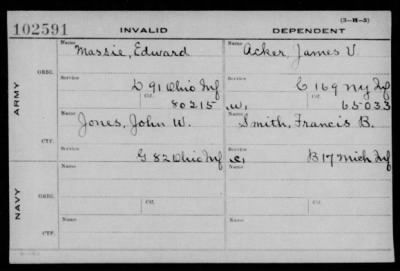 (3-H-5)
102591 INVALID DEPENDENT
Name Massie, Edward Name Acker, James V.
ORIG.
Service D 91 Ohio Inf Service C 169 NY Inf
Ctf. 80215 W, Ctf. 65033
ARMY
Name Jones, John W. Name Smith, Francis B.
CTF.
Service G 82 Ohio Inf Service B 17 Mich Inf
Name Name
ORIG.
Service Service
Ctf. Ctf.
NAVY
Name Name
CTF.
Service Service